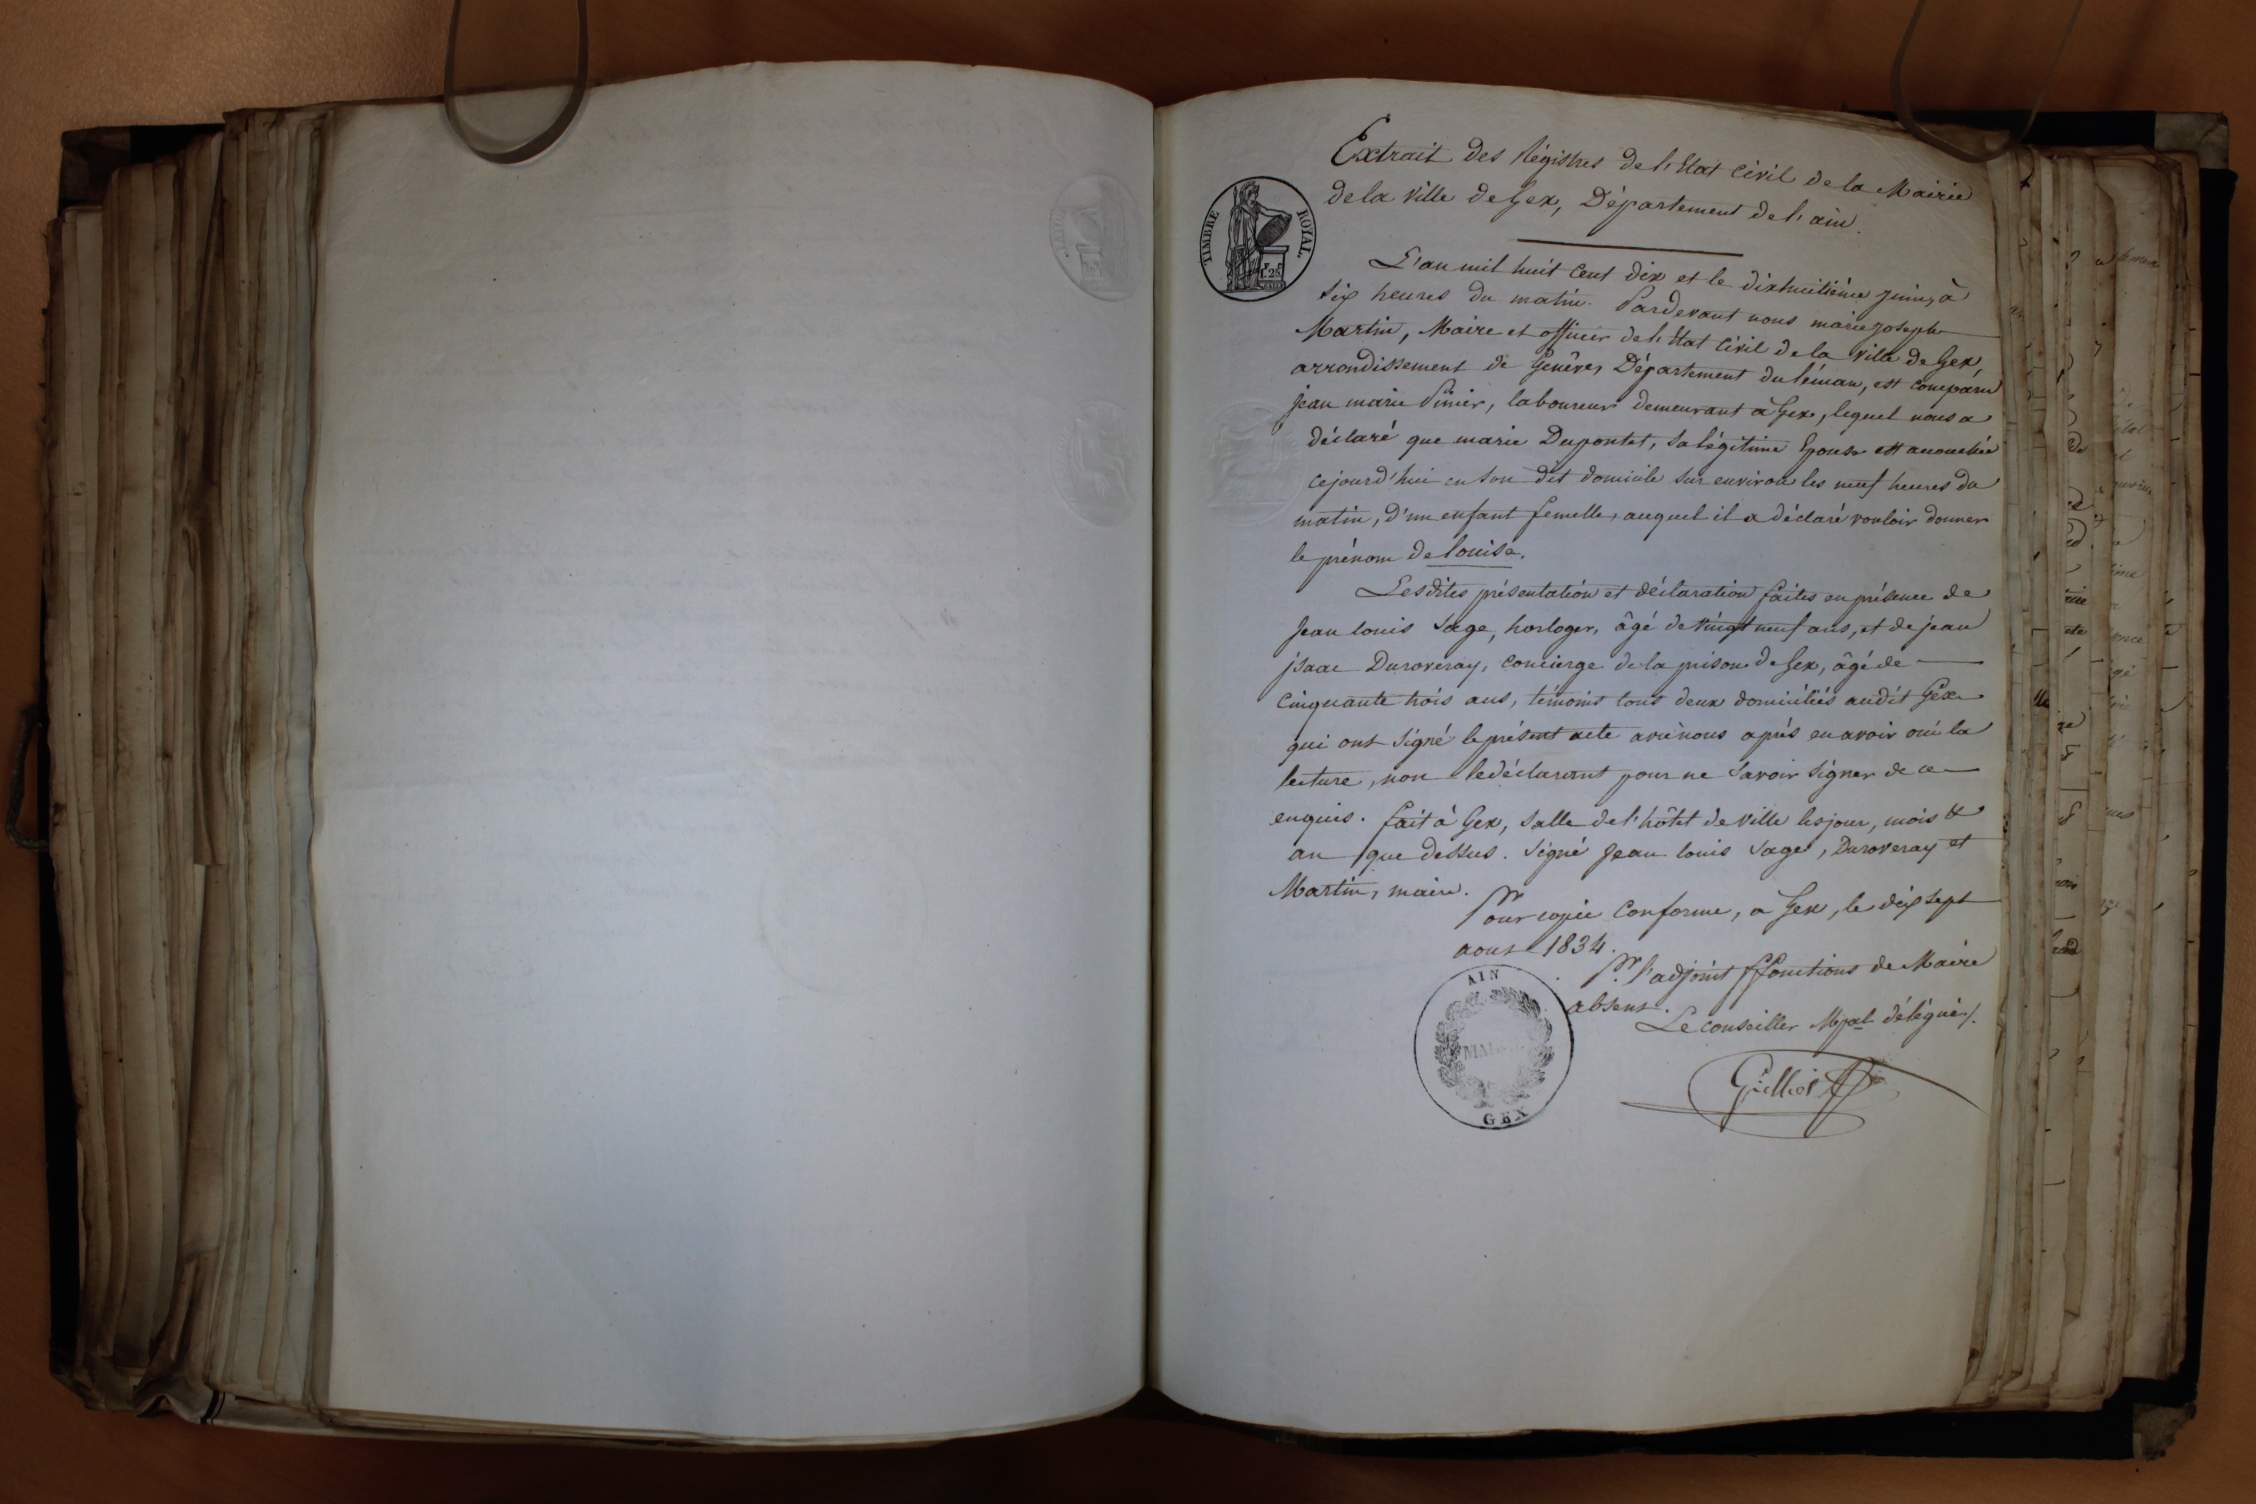 Extrait des Régistres de l'Etat Civil de la Mairie
de la Ville de Gex, Département de l'ain.
TIMBRE ROYAL
L'an mil huit Cent dix et le dixhuitième Juin, à
six heures du matin. Pardevant nous marie Joseph
Martin, Maire et officier de l'Etat Civil de la ville de Gex,
arrondissement de Genêve, Département du léman, est comparu
jean marie, laboureur demeurant à Gex, lequel nous a
déclaré que marie Dupontet, sa légitime Epouse est accouchée
cejourd'hui en son dit domicile sur environ les neuf heures du
matin, d'un enfant femelle, auquel il a déclaré vouloir donner
le prénom de louise.
Lesdites présentation et déclaration faites en présence de
Jean louis Sage, horloger, âgé de vingt neuf ans, et de jean
jsaac Duroveray, concierge de la prison de Gex, âgé de
cinquante trois ans, témoins tous deux domiciliés audit Gex
qui ont signé le présent acte avec nous après en avoir oui la
lecture, non le déclarant pour ne savoir signer de ce
enquis. fait à Gex, salle de l'hôtel de ville les jour, mois et
an que dessus. Signé Jean louis Sage, Duroveray et
Martin, maire.
Pour copie Conforme, a Gex, le dix sept
aout 1834.
Pr. l'adjoint ffonctions de Maire
absent.
Le conseiller Mpal délégué.
AIN
MAIRIE
GEX